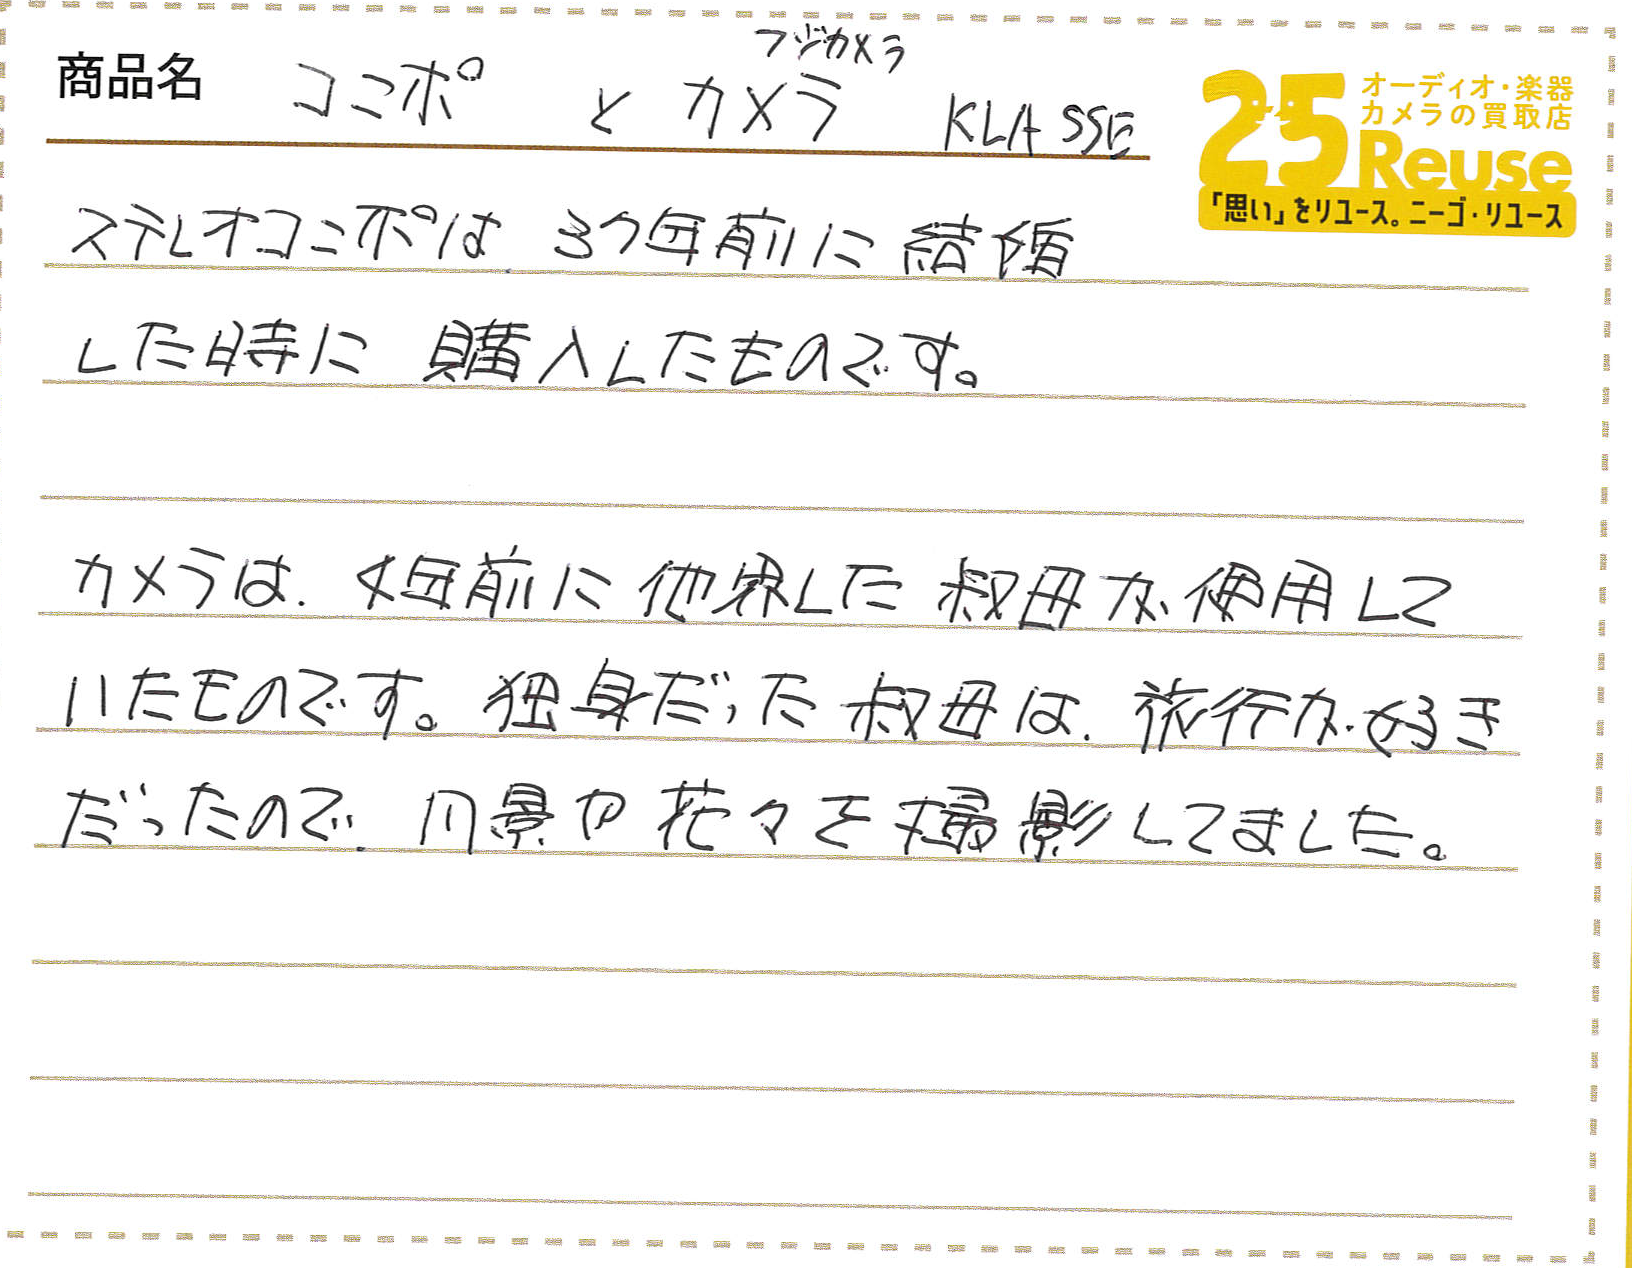 フジカメラ
商品名 コニポ と カメラ KLASSE
オーディオ・楽器
カメラの買取店
25 Reuse
「思い」をリユース。ニーゴ・リユース
ステレオコンポは、37年前に結婚
した時に購入したものです。
カメラは、4年前に他界した叔母が使用して
いたものです。独身だった叔母は、旅行が好き
だったので、風景や花々を撮影してました。